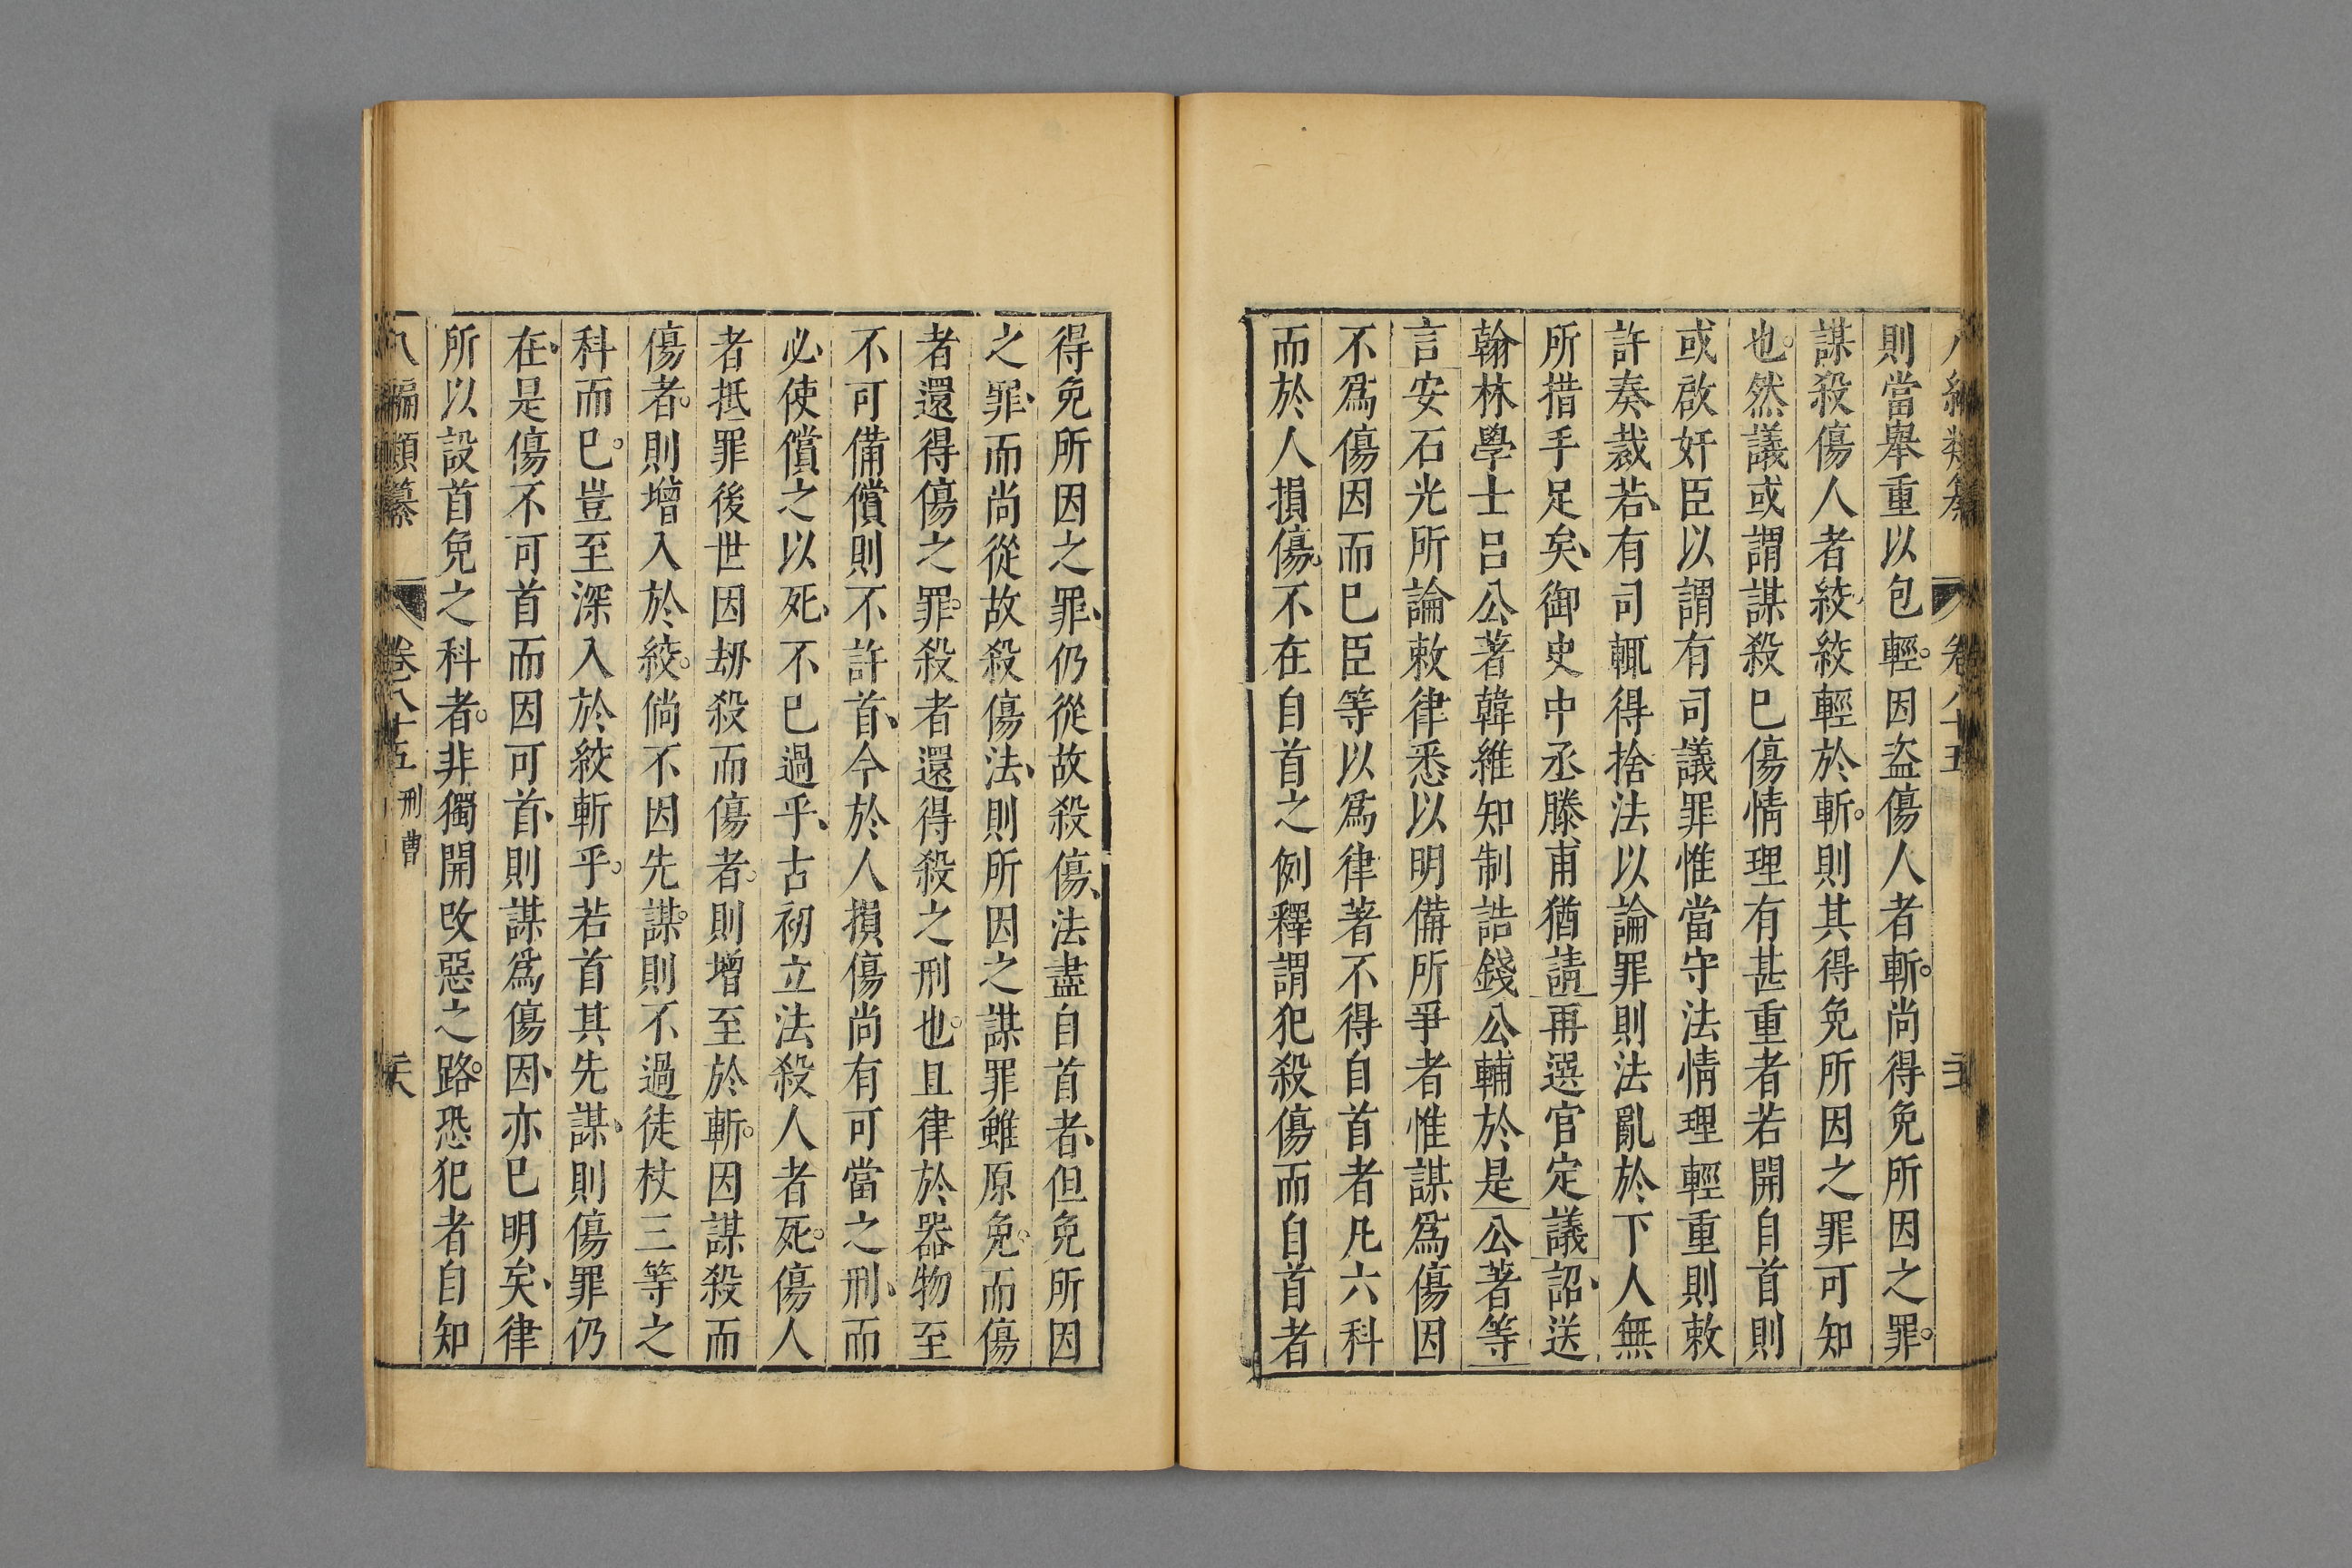 則當舉重以包輕。因盗傷人者斬。尚得免所因之罪。
謀殺傷人者絞、絞輕於斬。則其得免所因之罪可知
也。然議或謂謀殺已傷情理有甚重者若開自首則
或啟奸臣以謂有司議罪惟當守法情理輕重則敕
許奏裁、若有司輒得捨法以論罪則法亂於下人無
所措手足矣、御史中丞滕甫猶請再選官定議、詔送
翰林學士呂公著韓維知制誥錢公輔於是公著等
言安石光所論敕律悉以明備所爭者惟謀爲傷因
不爲傷因而已臣等以爲律著不得自首者凡六科
而於人損傷、不在自首之例釋謂犯殺傷而自首者
得免所因之罪、仍從故殺傷、法盡自首者、但免所因
之罪、而尚從故殺傷法、則所因之謀罪雖原免。而傷
者還得傷之罪。殺者還得殺之刑也。且律於器物至
不可備償則不許首、今於人損傷尚有可當之刑、而
必使償之以死、不已過乎、古初立法殺人者死。傷人
者抵罪後世因刼殺而傷者。則增至於斬。因謀殺而
傷者。則增入於絞。倘不因先謀。則不過徒杖三等之
科而已。豈至深入於絞斬乎。若首其先謀、則傷罪仍
在、是傷不可首而因可首、則謀爲傷因、亦已明矣、律
所以設首免之科者。非獨開改惡之路。恐犯者自知
八編類纂 卷八十五 刑曹 二六